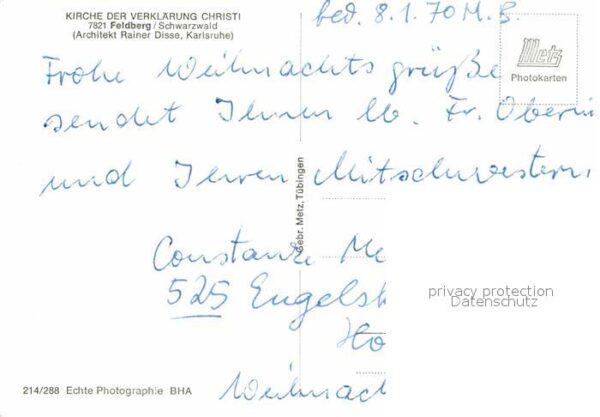 KIRCHE DER VERKLÄRUNG CHRISTI
7821 Feldberg/Schwarzwald
(Architekt Rainer Disse, Karlsruhe)
bed. 8.1.70 M.B.
Metz
Photokarten
Frohe Weihnachtsgrüße
sendet Ihnen lb. Fr. Oberin
und Ihren Mitschwestern
Gebr. Metz, Tübingen
Constanze Me
525 Engelsk
Ho
Weihnac
privacy protection
Datenschutz
214/288 Echte Photographie BHA